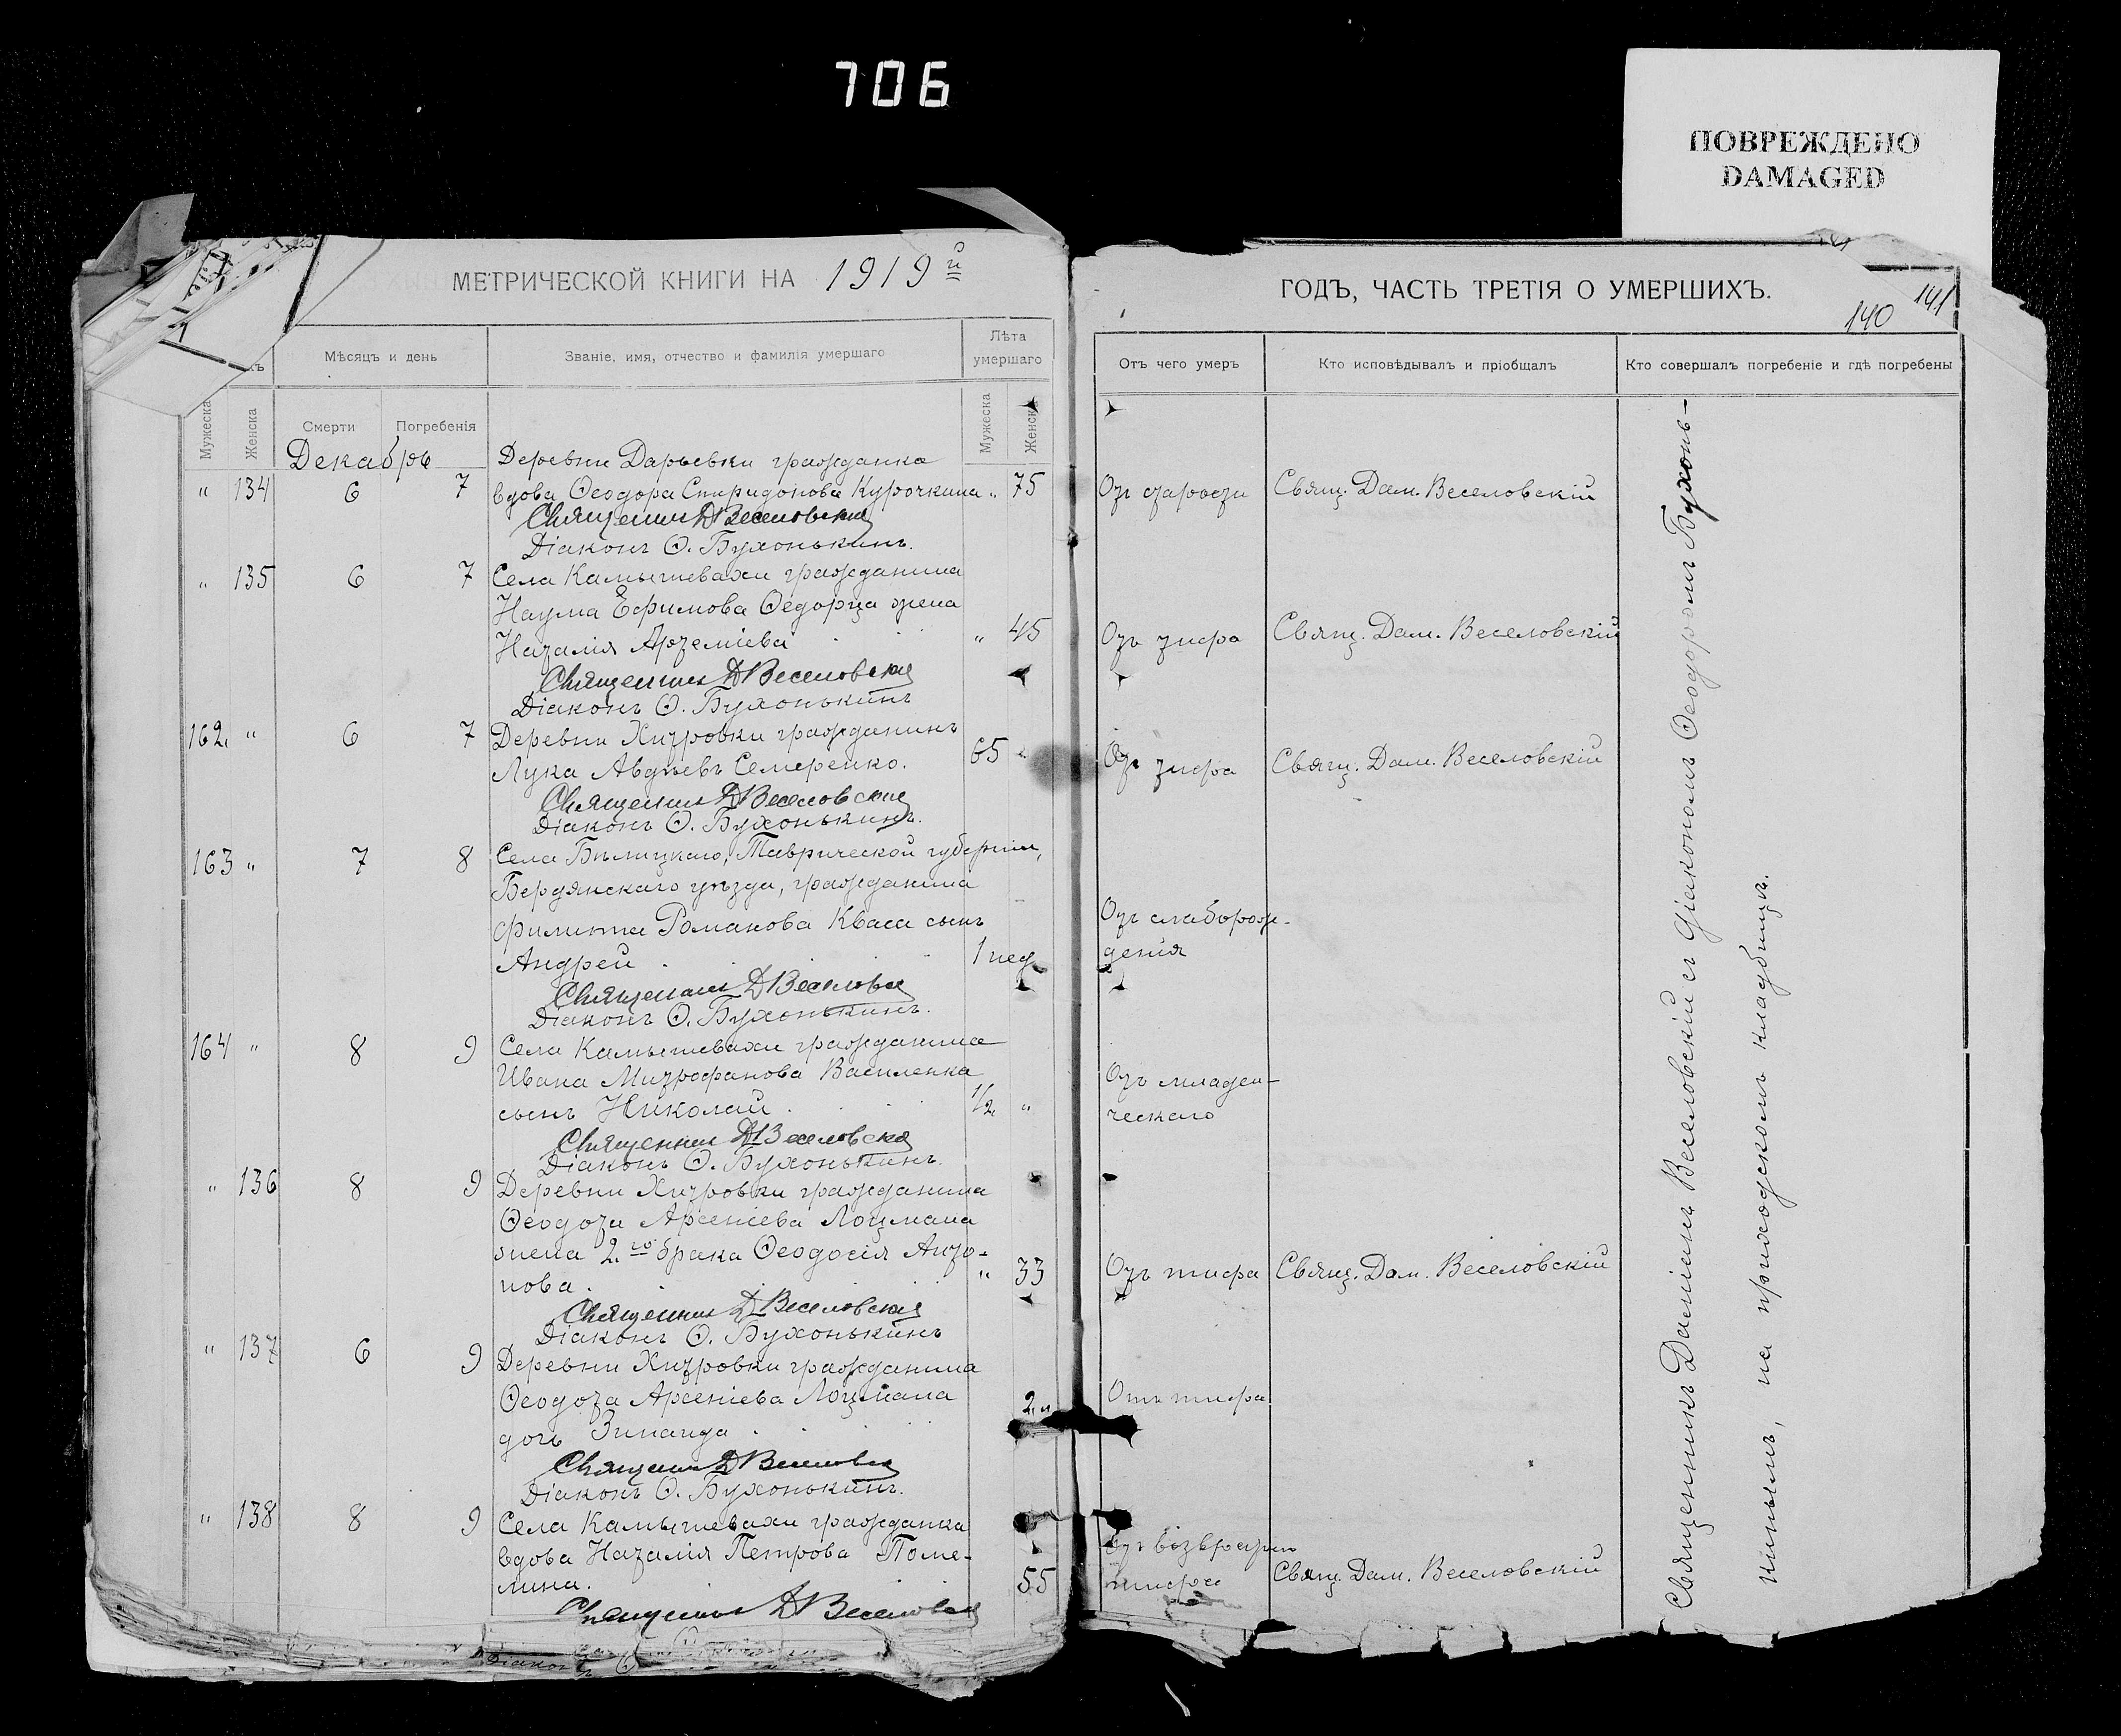 706
ПОВРЕЖДЕНО
DAMAGED
МЕТРИЧЕСКОЙ КНИГИ НА 1919й
ГОДЪ, ЧАСТЬ ТРЕТІЯ О УМЕРШИХЪ.
140 141
Мѣсяцъ и день
Званіе, имя, отчество и фамилія умершаго
Лѣта умершаго
Отъ чего умеръ
Кто исповѣдывалъ и пріобщалъ
Кто совершалъ погребеніе и гдѣ погребены
Мужеска
Женска
Смерти
Погребенія
Мужеска
Женска
Декабрь
Деревни Дарьевки гражданка
" 134 6 7 вдова Ѳеодора Спиридонова Курочкина " 75 Отъ старости Свящ. Дам. Веселовскій
Священникъ Д Веселовскій
Діаконъ Ѳ. Бухонькинъ.
" 135 6 7 Села Камышевахи гражданина
Наума Ефимова Ѳедорца жена
Наталія Артеміева " 45 Отъ тифа Свящ. Дам. Веселовскій
Священникъ Д Веселовскій
Діаконъ Ѳ. Бухонькинъ
162 " 6 7 Деревни Хитровки гражданинъ
Лука Авдѣевъ Семеренко. 65 " Отъ тифа Свящ. Дам. Веселовскій
Священникъ Д Веселовскій
Діаконъ Ѳ. Бухонькинъ.
163 " 7 8 Села Бѣлицкаго, Таврической губерніи,
Бердянскаго уѣзда, гражданина
Филиппа Романова Кваса сынъ
Андрей 1 нед. Отъ слаборож-
денія
Священникъ Д Веселовскій
Діаконъ Ѳ. Бухонькинъ.
164 " 8 9 Села Камышевахи гражданина
Ивана Митрофанова Василенка
сынъ Николай 1/2 " Отъ младен-
ческаго
Священникъ Д Веселовскій
Діаконъ Ѳ. Бухонькинъ.
" 136 8 9 Деревни Хитровки гражданина
Ѳеодота Арсеніева Лоцмана
жена 2.го брака Ѳеодосія Анто-
нова. " 33 Отъ тифа Свящ. Дам. Веселовскій
Священникъ Д Веселовскій
Діаконъ Ѳ. Бухонькинъ
" 137 6 9 Деревни Хитровки гражданина
Ѳеодота Арсеніева Лоцмана 2 Отъ тифа
дочь Зинаида
Священникъ Д Веселовскій
Діаконъ Ѳ. Бухонькинъ.
" 138 8 9 Села Камышевахи гражданка
вдова Наталія Петрова Поме-
лина. 55 Отъ возвратн. тифа Свящ. Дам. Веселовскій
Священникъ Д Веселовскій
Діаконъ Ѳ.
Священникъ Даміанъ Веселовскій съ Діакономъ Ѳеодоромъ Бухонь-
кинымъ, на приходскомъ кладбищѣ.